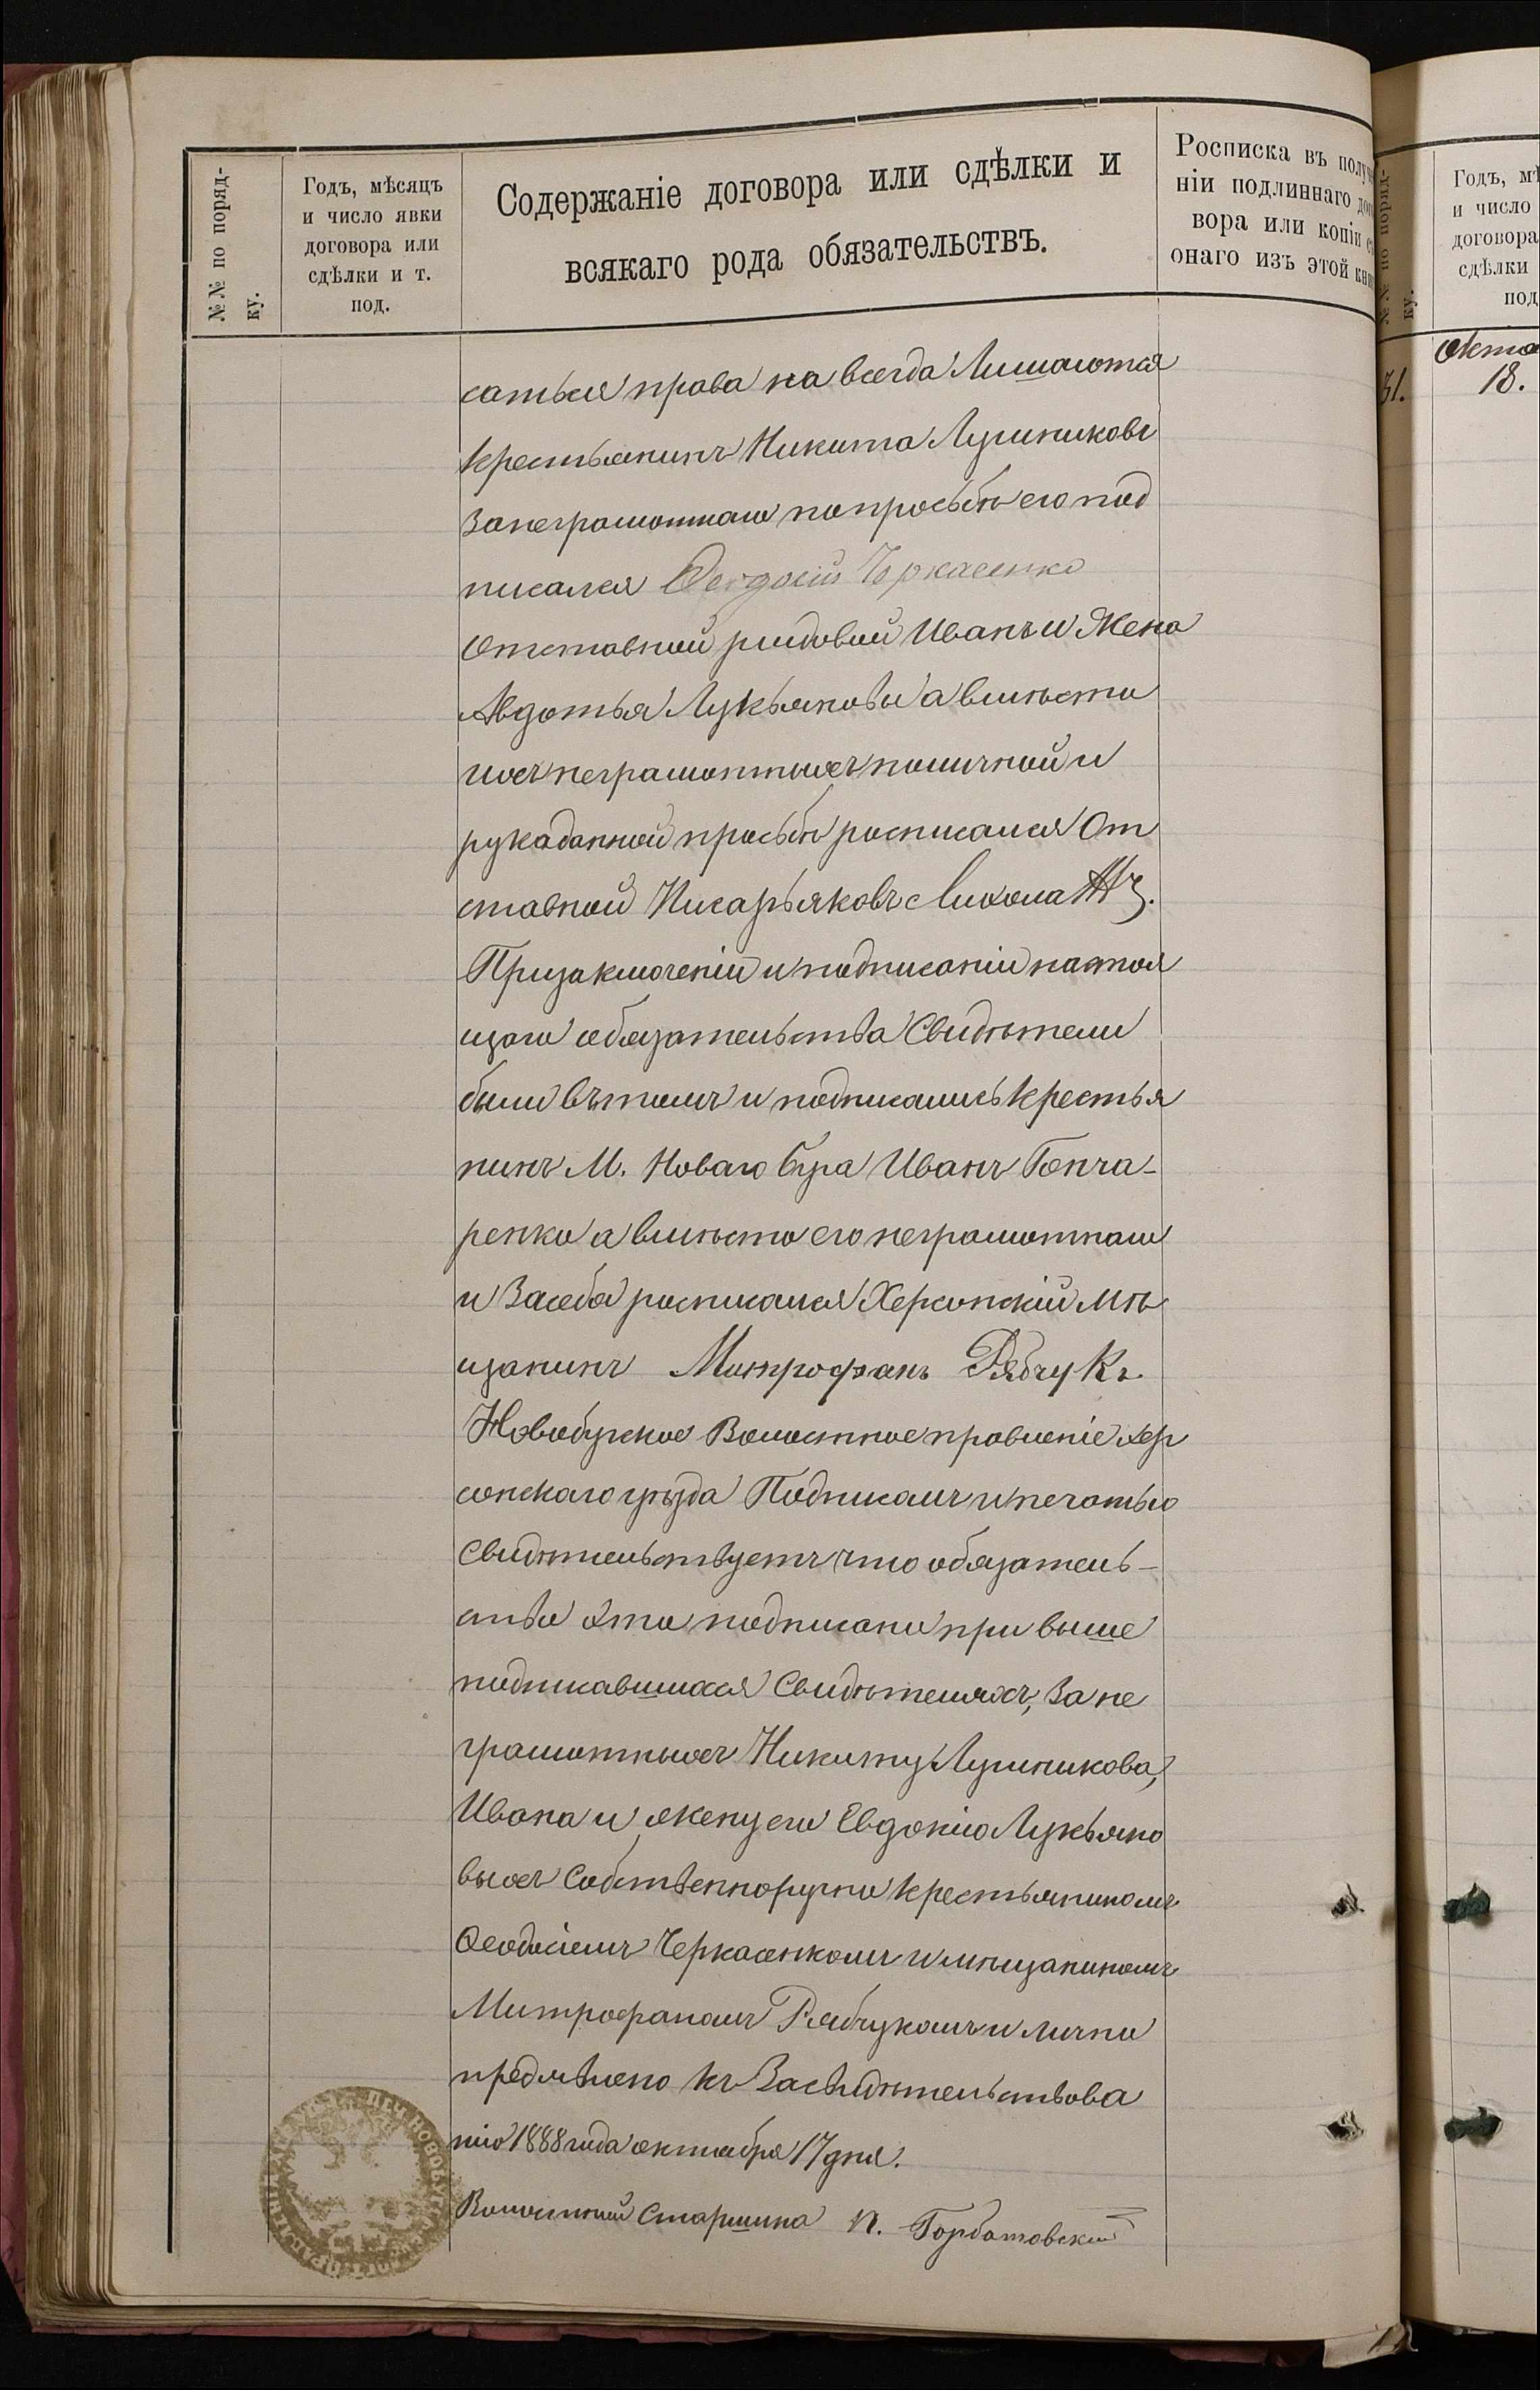 №№ по поряд-
ку.
Годъ, мѣсяцъ
и число явки
договора или
сдѣлки и т.
под.
Содержаніе договора или сдѣлки и
всякаго рода обязательствъ.
Росписка въ получ
ніи подлиннаго дог
вора или копіи съ
онаго изъ этой кни
саться права на всегда Лишаются
крестьянинъ Никита Лушниковъ
Занеграмотнаго попросьбѣ его под
писался Феодосій Черкасенко
Отставной рядовой Иванъ и Жена
Авдотья Лукьяновы а вмѣсто
ихъ неграмотныхъ поличной и
рукаданной просьбѣ росписался От
ставной Писарь Яковъ
Призаключеніи и подписаніи настоя
щаго обязательства Свидѣтели
были вътомъ и подписались Крестья
нинъ М. Новаго Буга Иванъ Гонча-
ренко а вмѣсто его неграмотнаго
и Засебя росписался Херсонскій мѣ
щанинъ Митрофанъ Рябчукъ
Новобугское Волостное правленіе Хер
сонскаго уѣзда Подписомъ и печатью
Свидѣтельствуетъ что обязатель-
ство это подписано при выше
подписавшихся Свидѣтеляхъ, За не
грамотныхъ Никиту Лушникова,
Ивана и жену его Евдокію Лукьяно
выхъ Собственноручно крестьяниномъ
Ѳеодосіемъ Черкасенкомъ и мѣщаниномъ
Митрофаномъ Рябчукомъ и лично
предявлено къ Засвидѣтельствова
нію 1888 года октября 17 дня.
Волостной Старшина П. Горбатовскій
№№ по поряд-
ку.
Годъ, мѣ
и число
договора
сдѣлки
под
31.
Октя
18.